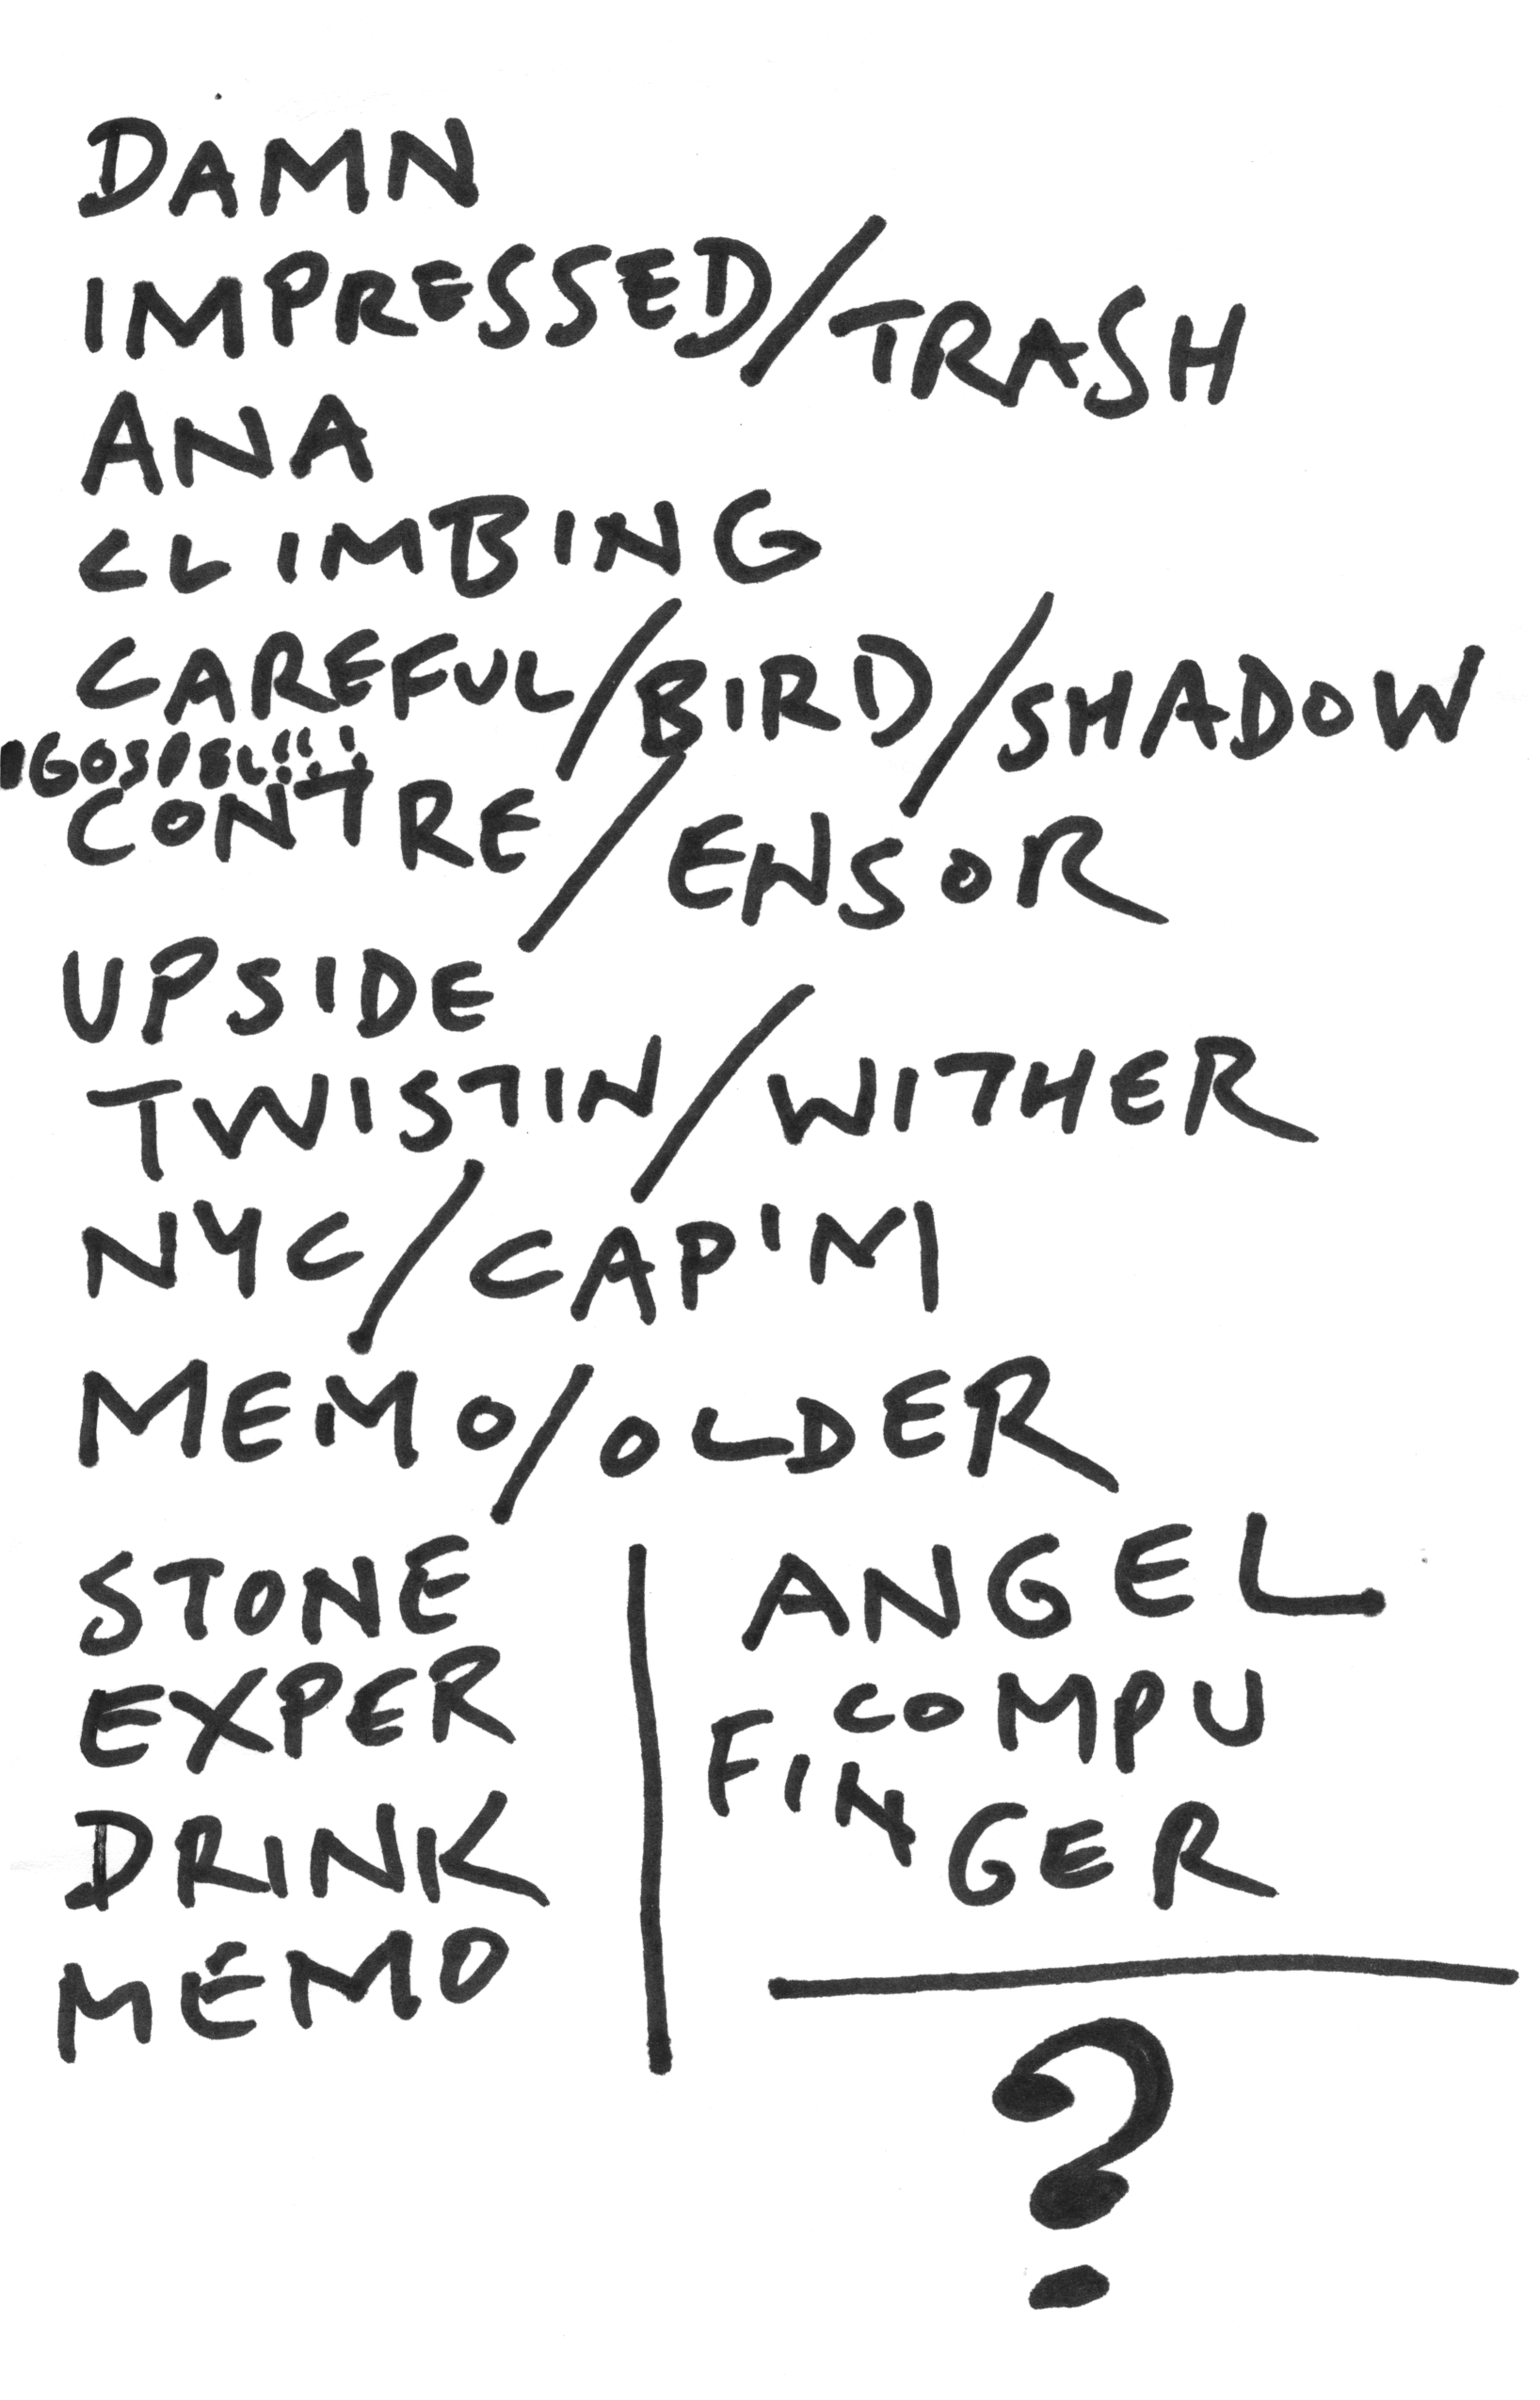 DAMN
IMPRESSED/TRASH
ANA
CLIMBING
CAREFUL/BIRD/SHADOW
GOSPEL!!!
CONTRE/ENSOR
UPSIDE
TWISTIN/WITHER
NYC/CAP'M
MEMO/OLDER
STONE
EXPER
DRINK
MEMO
ANGEL
COMPU
FINGER
?